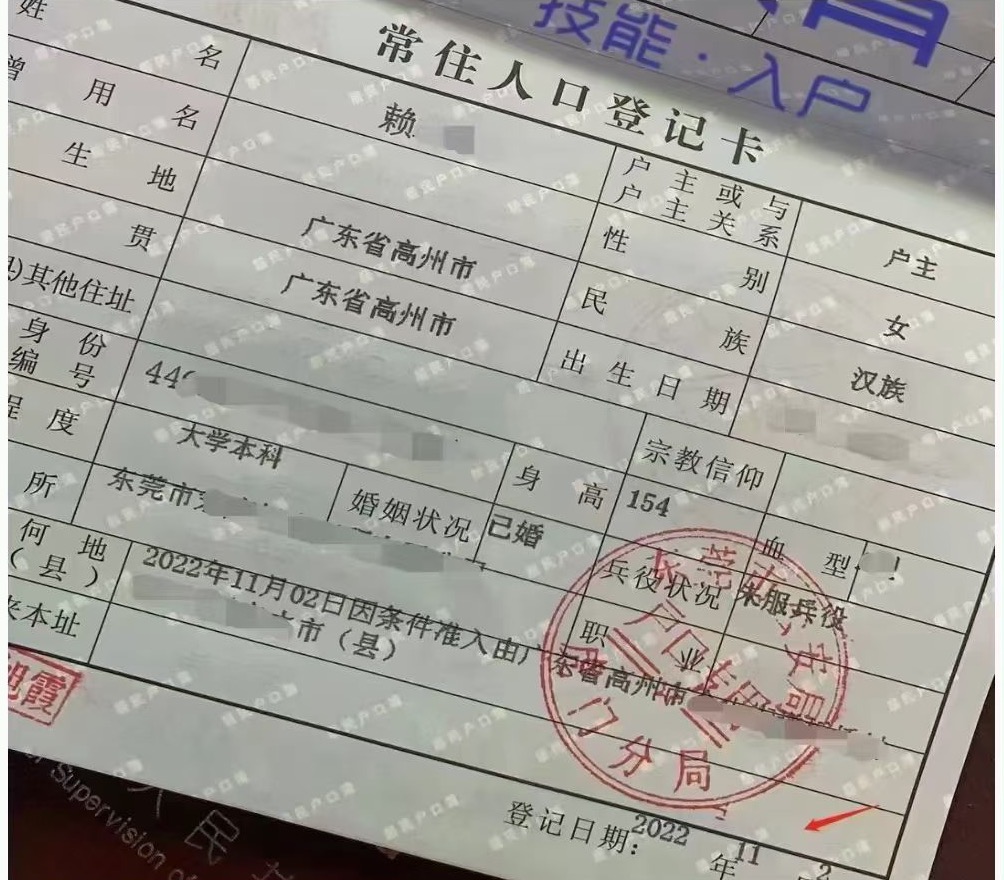 技能·入户
常住人口登记卡
姓 名
赖
户主或与
户主关系
户主
曾用名
性 别
女
生地
广东省高州市
民 族
汉族
贯
广东省高州市
出生日期
其他住址
宗教信仰
身份
编号
44
身 高
154
血 型
程度
大学本科
婚姻状况
已婚
兵役状况
未服兵役
所
东莞市
职 业
何地
(县)
2022年11月02日因条件准入由广东省高州市
市(县)
来本址
东莞市公安局
户口专用
门分局
霞
登记日期:2022年11 2
居民户口簿
人民
Supervision of